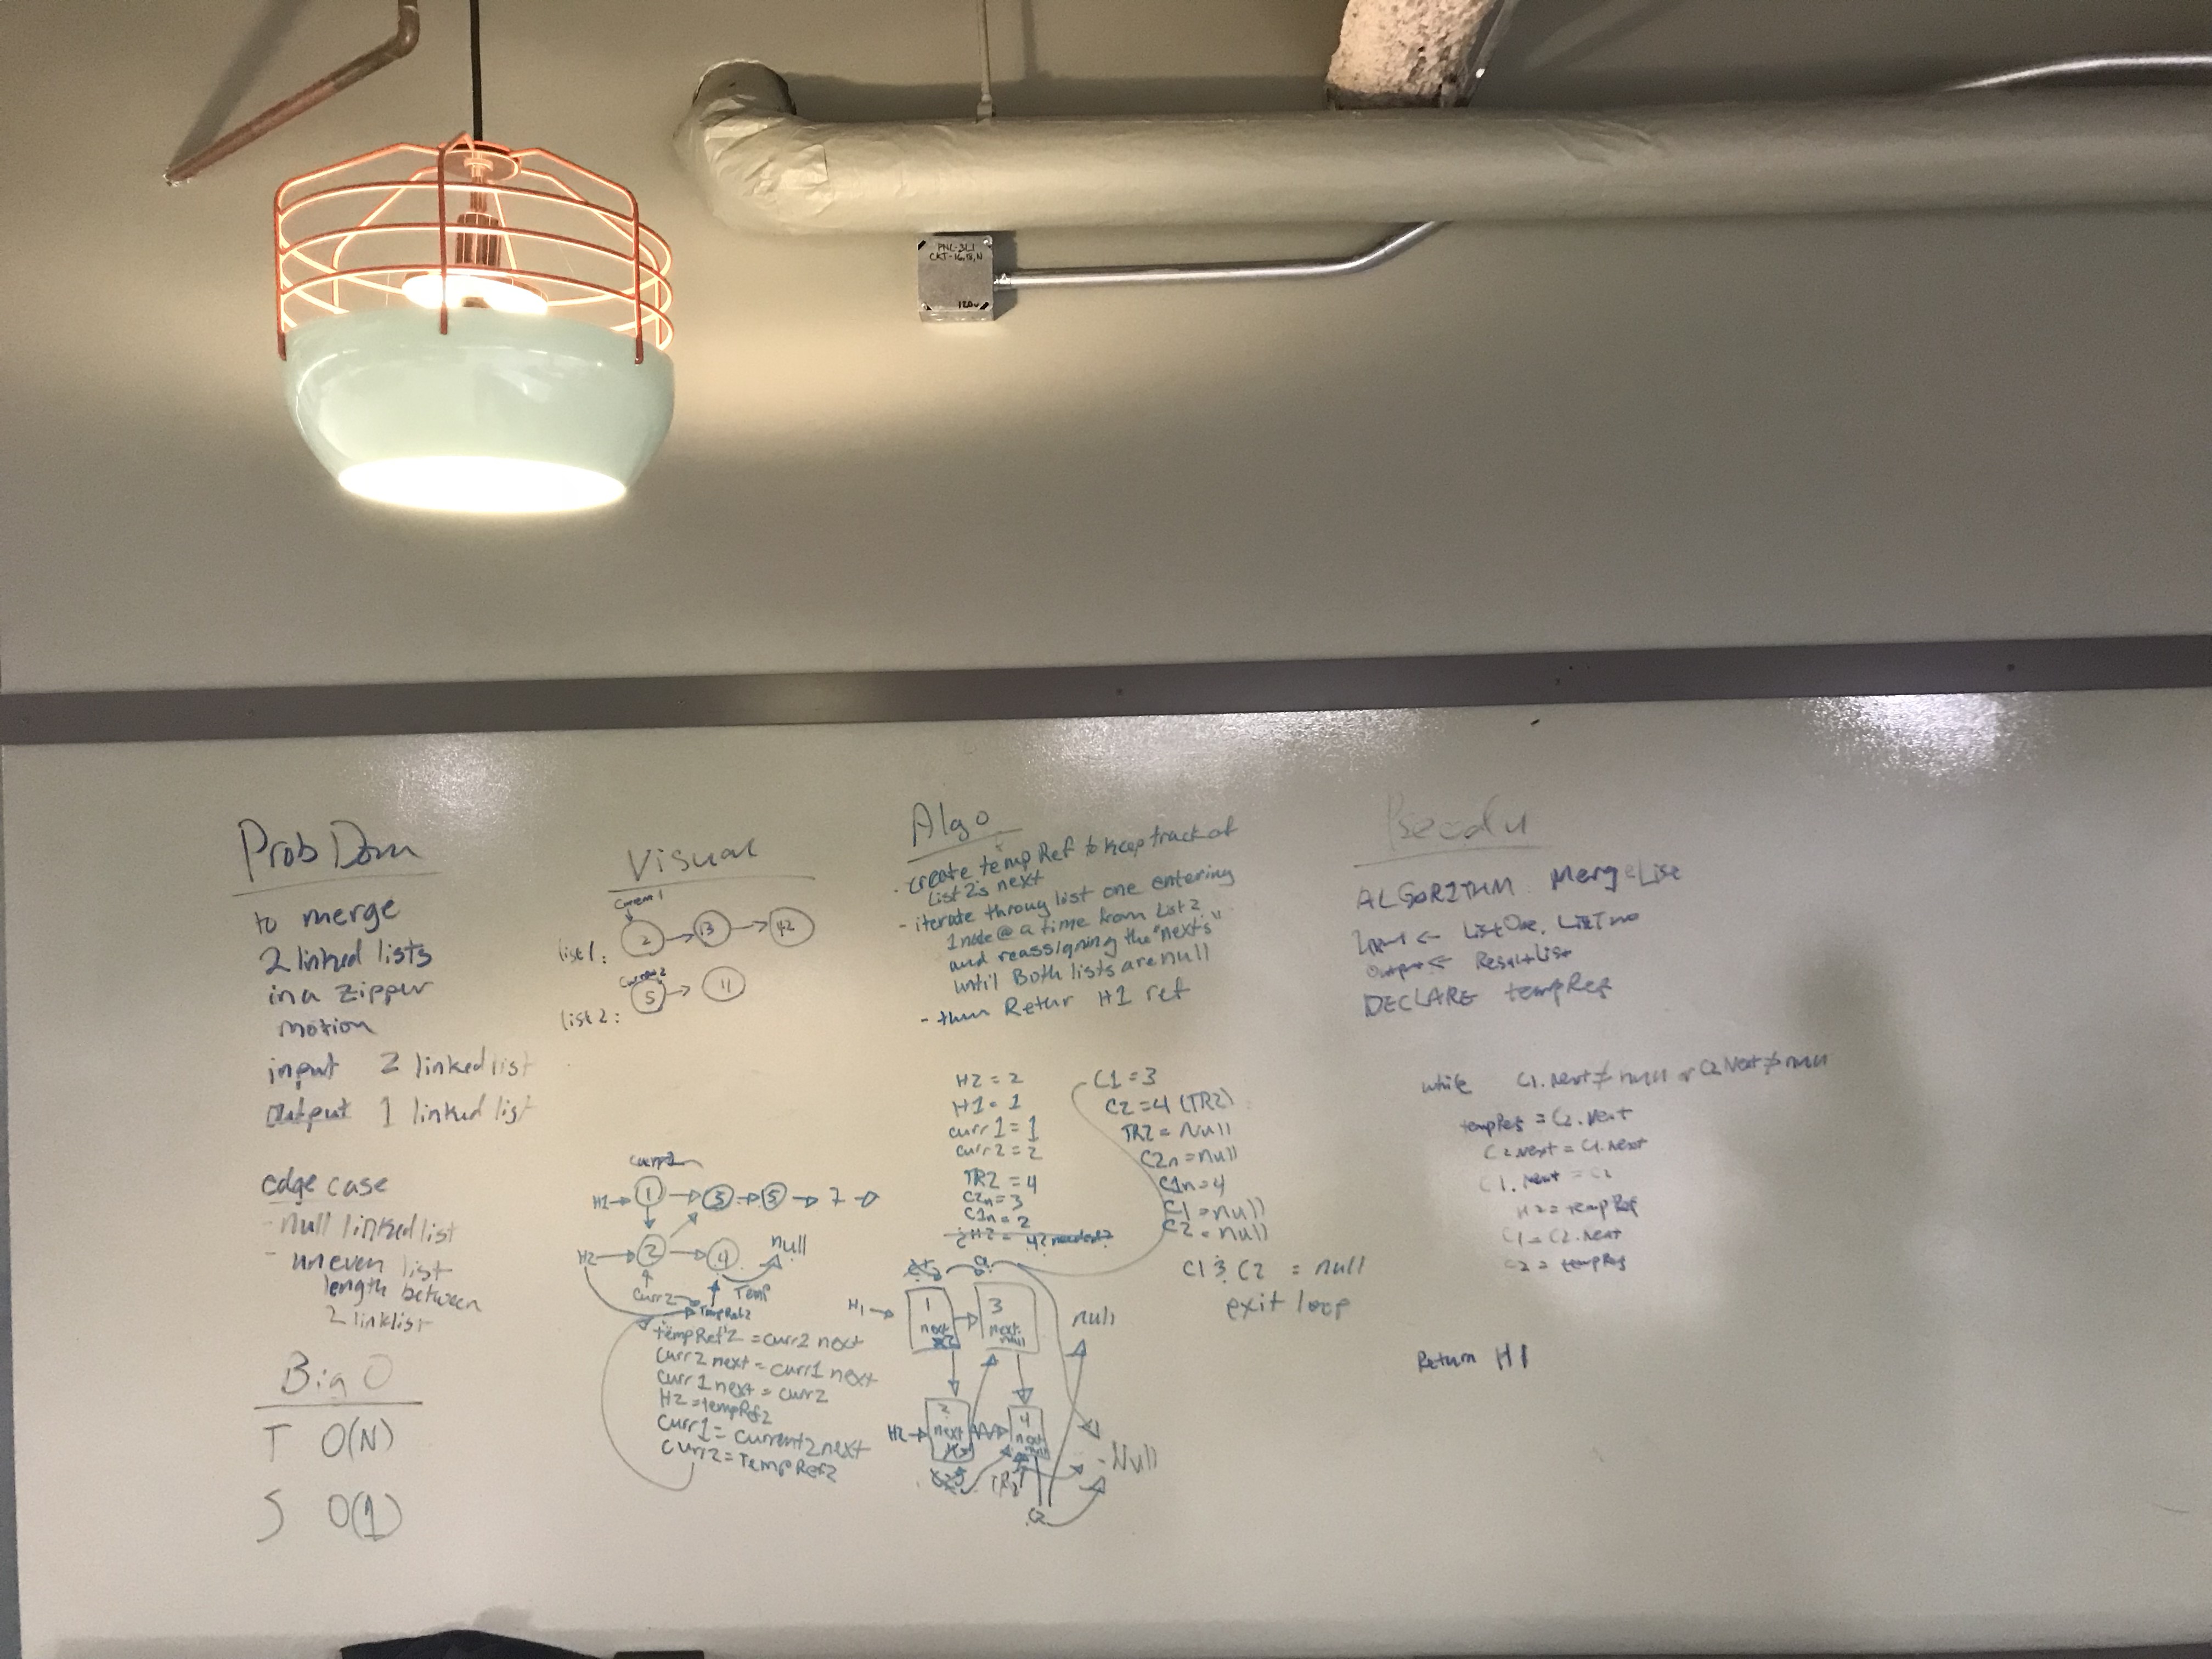 PNL-3L1
CKT-16,18,N
120v
Prob Dom
to merge
2 linked lists
in a zipper
motion
input 2 linked list
output 1 linked list
edge case
- null linked list
- uneven list
length between
2 linklist
Big O
T O(N)
S O(1)
Visual
list 1:
2
13
42
list 2:
5
11
H1
1
3
5
7
H2
2
4
null
Curr2
Temp
TempRef2
tempRef2 = curr2 next
Curr2 next = curr1 next
Curr1 next = curr2
H2 = tempRef2
Curr1 = Current2 next
Curr2 = TempRef2
Algo
. create tempRef to keep track of
List 2's next
- iterate throug list one entering
1 node @ a time from List 2
and reassigning the "nexts"
until Both lists are null
- then Retur H1 ref
H2 = 2
H1 = 1
curr1 = 1
curr2 = 2
TR2 = 4
C2n = 3
C1n = 2
C1 = 3
C2 = 4 (TR2)
TR2 = Null
C2n = null
C1n = 4
C1 = null
C2 = null
C1 & C2 = null
exit loop
H1
1
next
3
next
null
null
H2
2
next
4
next
null
TR2
C2
- Null
Psecdu
ALGORITHM MergeList
Input <- ListOne, ListTwo
Output <- ResultList
DECLARE tempRef
while C1.Next ≠ null or C2 Next ≠ null
tempRef = C2.Next
C2.next = C1.next
C1.next = C2
H2 = tempRef
C1 = C2.next
C2 = tempRef
Return H1